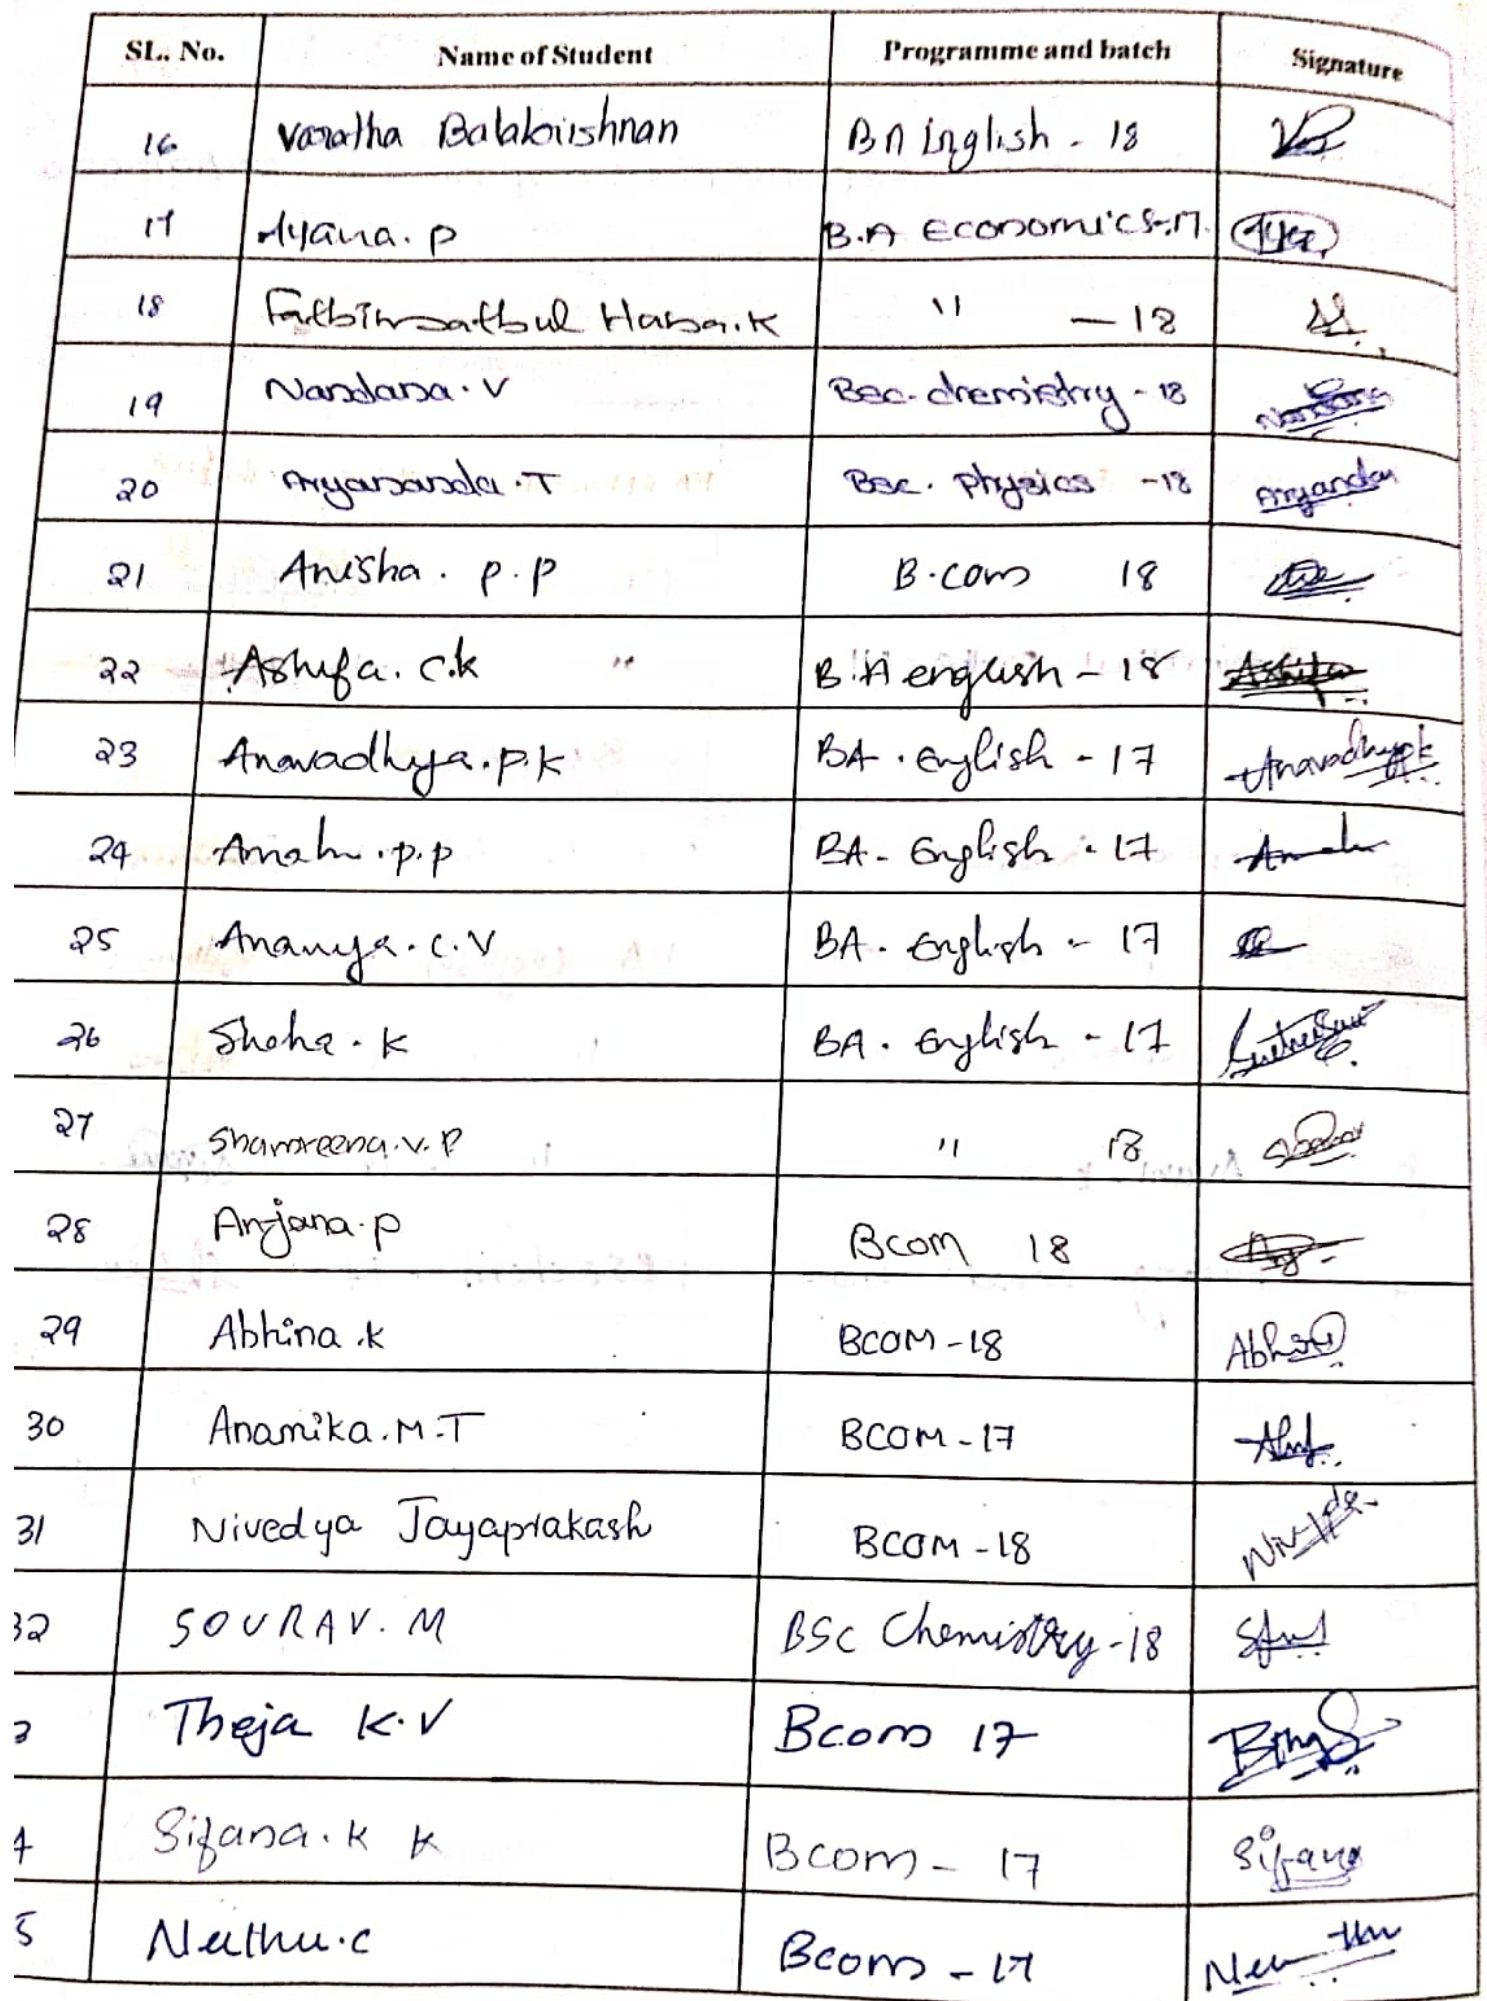 SL. No. Name of Student Programme and batch Signature
16 Varatha Balakrishnan BA English - 18
17 Ayana. P B.A Economics-17.
18 Fathimathul Hasna.K " - 18
19 Nandana. V Bsc. chemistry - 18 Nandana
20 Aryananda. T Bsc. Physics - 18 Aryanda
21 Anisha. P. P B.com 18
22 Ashifa. C.K " B.A english - 18 Ashifa
23 Anavadhya. P. K BA. English - 17 Anavadhyapk
24 P. P BA - English - 17
25 Ananya. C. V BA. English - 17
26 K BA. English - 17
27 Shamreena. V. P " 18
28 Anjana. P Bcom 18
29 Abhina .K BCOM - 18
30 Anamika. M. T BCOM - 17
31 Nivedya Jayaprakash BCOM - 18
32 SOURAV. M BSc Chemistry - 18
3 Theja K.V Bcom 17
4 Sifana. K K Bcom - 17 Sifana
5 Neethu. C Bcom - 17